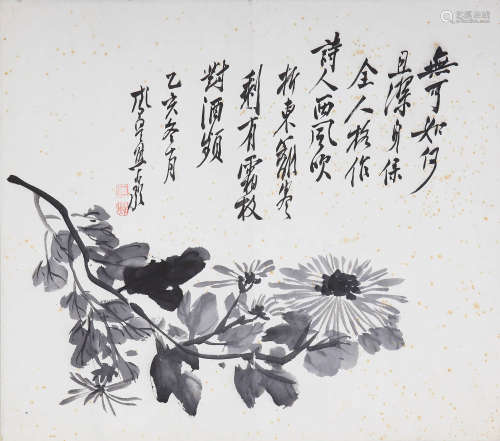 無可如何
且潔身保
全人格作
詩人西風吹
折東籬卷
剩有霜枝
對酒頻
乙亥冬十月